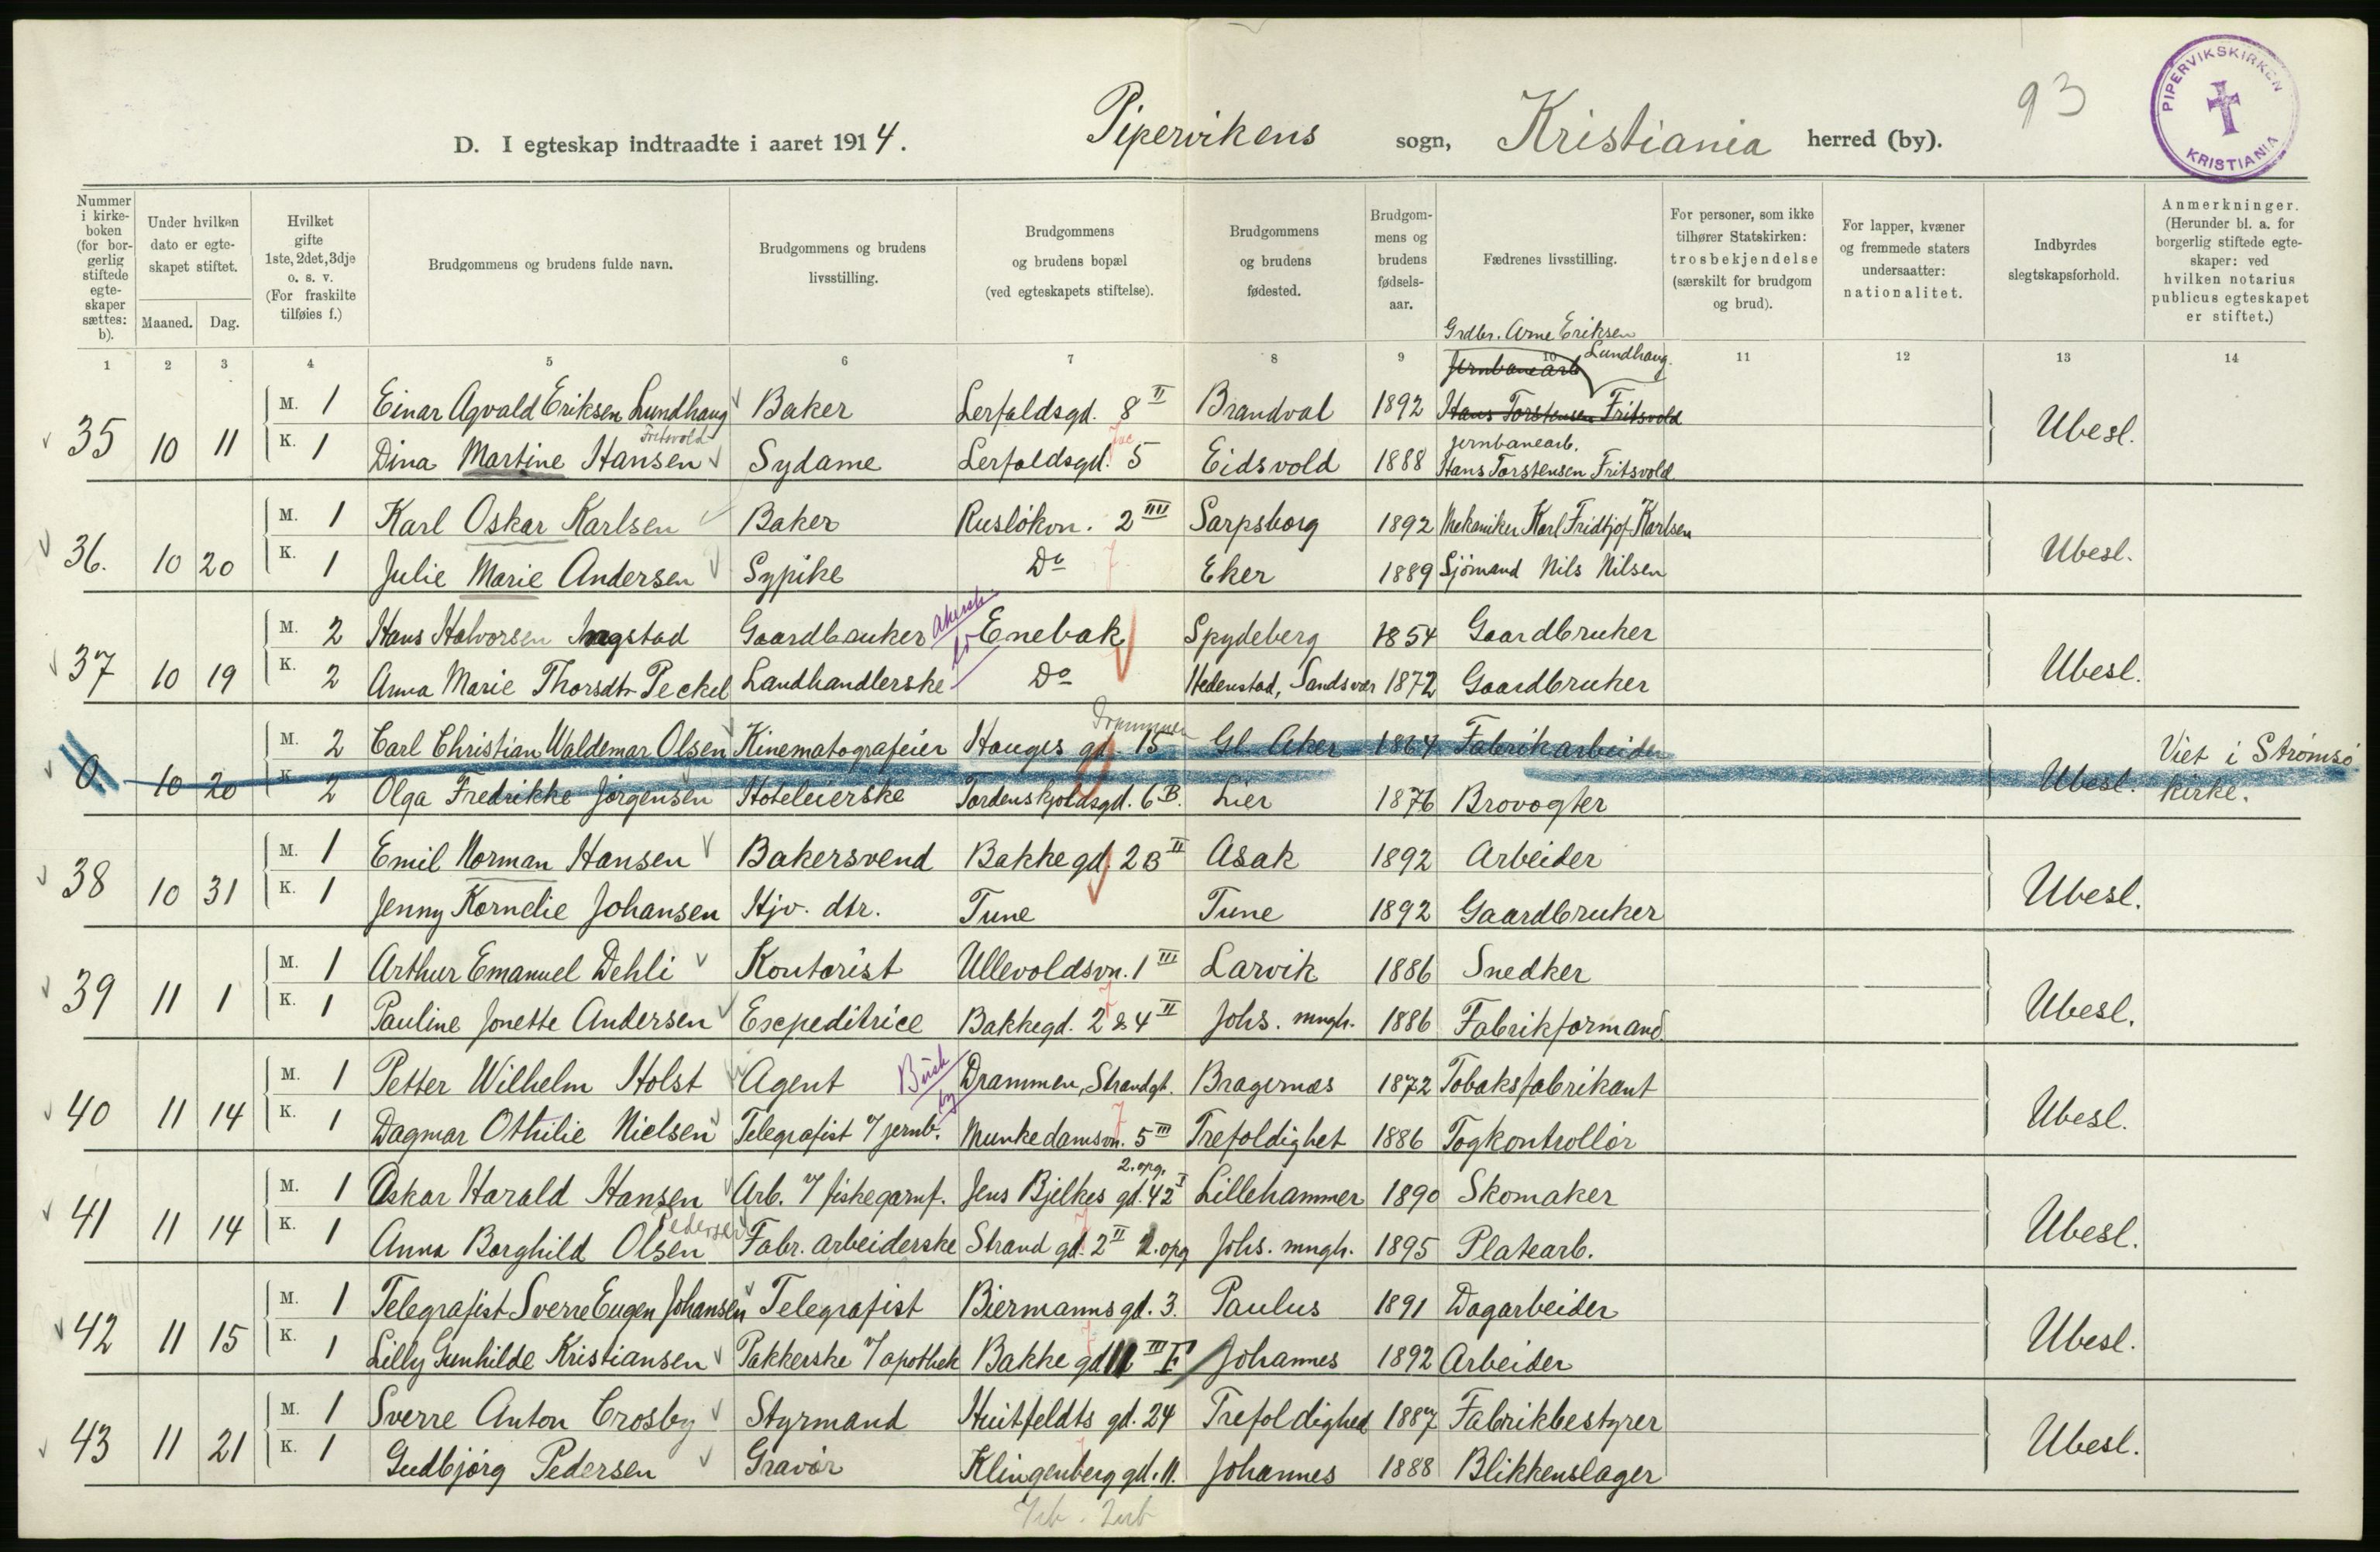 93
PIPERVIKSKIRKEN KRISTIANIA
D. I egteskap indtraadte i aaret 1914. Pipervikens sogn, Kristiania herred (by).
Nummer i kirke-boken (for bor-gerlig stiftede egte-skaper sættes: b).
Under hvilken dato er egte-skapet stiftet.
Maaned. Dag.
Hvilket gifte 1ste, 2det, 3dje o. s. v. (For fraskilte tilføies f.)
Brudgommens og brudens fulde navn.
Brudgommens og brudens livsstilling.
Brudgommens og brudens bopæl (ved egteskapets stiftelse).
Brudgommens og brudens fødested.
Brudgom-mens og brudens fødsels-aar.
Fædrenes livsstilling.
For personer, som ikke tilhører Statskirken: trosbekjendelse (særskilt for brudgom og brud).
For lapper, kvæner og fremmede staters undersaatter: nationalitet.
Indbyrdes slegtskapsforhold.
Anmerkninger. (Herunder bl. a. for borgerlig stiftede egte-skaper: ved hvilken notarius publicus egteskapet er stiftet.)
1 2 3 4 5 6 7 8 9 10 11 12 13 14
Grdbr. Arne Eriksen Lundhaug.
Jernbanearb
M. 1 Einar Agvald Eriksen Lundhaug Baker Lerfaldsgd. 8 II Brandval 1892 Hans Torstensen Fritsvold
35 10 11 Ubesl.
Fritsvold
jernbanearb.
K. 1 Dina Martine Hansen Sydame Lerfaldsgd. 5 Eidsvold 1888 Hans Torstensen Fritsvold
M. 1 Karl Oskar Karlsen Baker Rusløkvn. 2 III Sarpsborg 1892 Mekaniker Karl Fridtjof Karlsen
36. 10 20 Ubesl.
K. 1 Julie Marie Andersen Sypike Do Eker 1889 Sjömand Nils Nilsen
M. 2 Hans Halvorsen Ingstad Gaardbruker Akersh. Enebak Spydeberg 1854 Gaardbruker
37 10 19 Ubesl.
K. 2 Anna Marie Thorsdtr Peckel Landhandlerske Do Hedenstad, Sandsvær 1872 Gaardbruker
Drammen
M. 2 Carl Christian Waldemar Olsen Kinematografeier Hauges gd. 15 Gl. Aker 1864 Fabrikarbeider
0. 10 20 Ubesl. Viet i Strømsö kirke.
K. 2 Olga Fredrikke Jörgensen Hoteleierske Tordenskjoldsgd. 6 B. Lier 1876 Brovogter
M. 1 Emil Norman Hansen Bakersvend Bakke gd. 2 B II Asak 1892 Arbeider
38 10 31 Ubesl.
K. 1 Jenny Kornelie Johansen Hjv. dtr. Tune Tune 1892 Gaardbruker
M. 1 Arthur Emanuel Dehli Kontorist Ullevoldsvn. 1 III Larvik 1886 Snedker
39 11 1 Ubesl.
K. 1 Pauline Jonette Andersen Escpeditrice Bakkegd. 2 & 4 II Johs. mngh. 1886 Fabrikformand
M. 1 Petter Wilhelm Holst Agent Busk by Drammen, Strandgt. Bragernæs 1872 Tobaksfabrikant
40 11 14 Ubesl.
K. 1 Dagmar Othilie Nielsen Telegrafist v/ jernb. Munkedamsvn. 5 III Trefoldighet 1886 Togkontrollör
2. opg.
M. 1 Oskar Harald Hansen Arb. v/ fiskegarnf. Jens Bjelkes gd. 42 I Lillehammer 1890 Skomaker
41 11 14 Ubesl.
Pedersen
K. 1 Anna Borghild Olsen Fabr. arbeiderske Strand gd. 2 II 2. opg Johs. mngh. 1895 Platearb.
M. 1 Telegrafist Sverre Eugen Johansen Telegrafist Biermanns gd. 3. Paulus 1891 Dagarbeider
42 11 15 Ubesl.
K. 1 Lilly Gunhilde Kristiansen Pakkerske v/ apothek Bakke gd 11 III F Johannes 1892 Arbeider
M. 1 Sverre Anton Crosby Styrmand Huitfeldts gd. 24 Trefoldighed 1887 Fabrikbestyrer
43 11 21 Ubesl.
K. 1 Gudbjörg Pedersen Gravör Klingenberg gd. 11. Johannes 1888 Blikkenslager